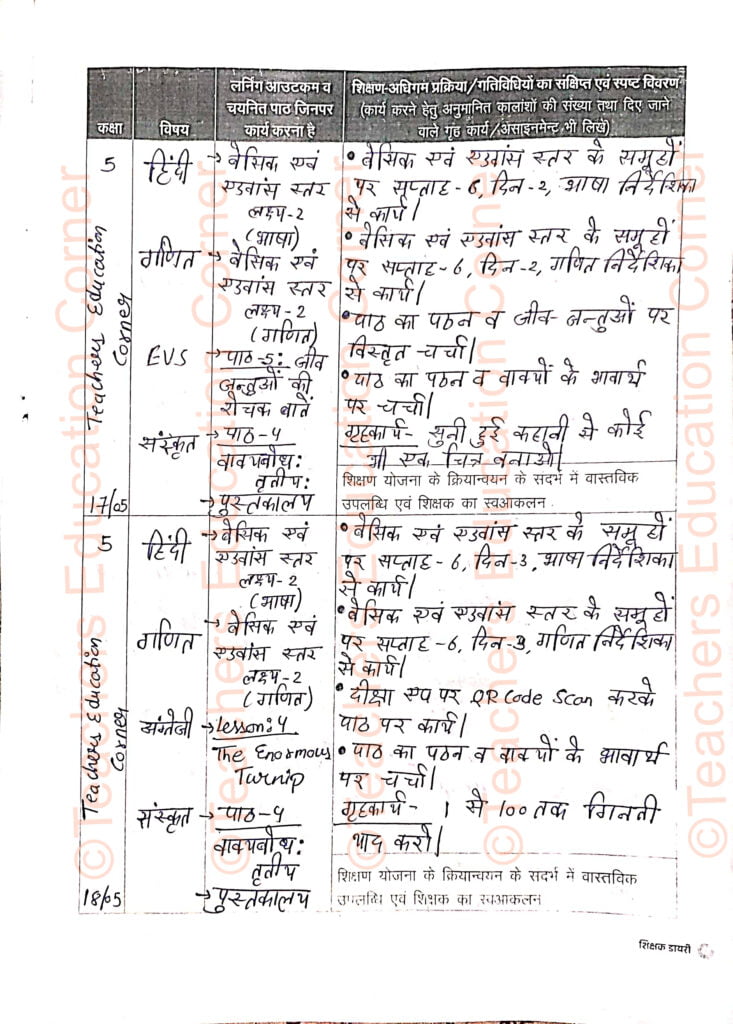 कक्षा
विषय
लर्निंग आउटकम व
चयनित पाठ जिनपर
कार्य करना है
शिक्षण-अधिगम प्रक्रिया/गतिविधियों का संक्षिप्त एवं स्पष्ट विवरण
(कार्य करने हेतु अनुमानित कालांशों की संख्या तथा दिए जाने
वाले गृह कार्य/असाइनमेन्ट भी लिखें)
5
हिंदी
→ बेसिक एवं
एडवांस स्तर
लक्ष्य-2
(भाषा)
• बेसिक एवं एडवांस स्तर के समूहों
पर सप्ताह-6, दिन-2, भाषा निर्देशिका
से कार्य।
गणित
→ बेसिक एवं
एडवांस स्तर
लक्ष्य-2
(गणित)
• बेसिक एवं एडवांस स्तर के समूहों
पर सप्ताह-6, दिन-2, गणित निर्देशिका
से कार्य।
EVS
→ पाठ-5: जीव
जन्तुओं की
रोचक बातें
• पाठ का पठन व जीव-जन्तुओं पर
विस्तृत चर्चा।
संस्कृत
→ पाठ-4
वाक्यबोध:
तृतीय:
→ पुस्तकालय
• पाठ का पठन व वाक्यों के भावार्थ
पर चर्चा।
गृहकार्य- सुनी हुई कहानी से कोई
भी एक चित्र बनाओ।
शिक्षण योजना के क्रियान्वयन के सदर्भ में वास्तविक
उपलब्धि एवं शिक्षक का स्वआकलन
17/05
Teachers Education
Corner
5
हिंदी
→ बेसिक एवं
एडवांस स्तर
लक्ष्य-2
(भाषा)
• बेसिक एवं एडवांस स्तर के समूहों
पर सप्ताह-6, दिन-3, भाषा निर्देशिका
से कार्य।
गणित
→ बेसिक एवं
एडवांस स्तर
लक्ष्य-2
(गणित)
• बेसिक एवं एडवांस स्तर के समूहों
पर सप्ताह-6, दिन-3, गणित निर्देशिका
से कार्य।
अंग्रेजी
→ Lesson:4
The Enormous
Turnip
• दीक्षा एप पर QR Code Scan करके
पाठ पर कार्य।
संस्कृत
→ पाठ-4
वाक्यबोध:
तृतीय
→ पुस्तकालय
• पाठ का पठन व वाक्यों के भावार्थ
पर चर्चा।
गृहकार्य- 1 से 100 तक गिनती
याद करो।
शिक्षण योजना के क्रियान्वयन के सदर्भ में वास्तविक
उपलब्धि एवं शिक्षक का स्वआकलन
18/05
Teachers Education
Corner
शिक्षक डायरी
©Teachers Education Corner
©Teachers Education Corner
©Teachers Education Corner
©Teachers Education Corner